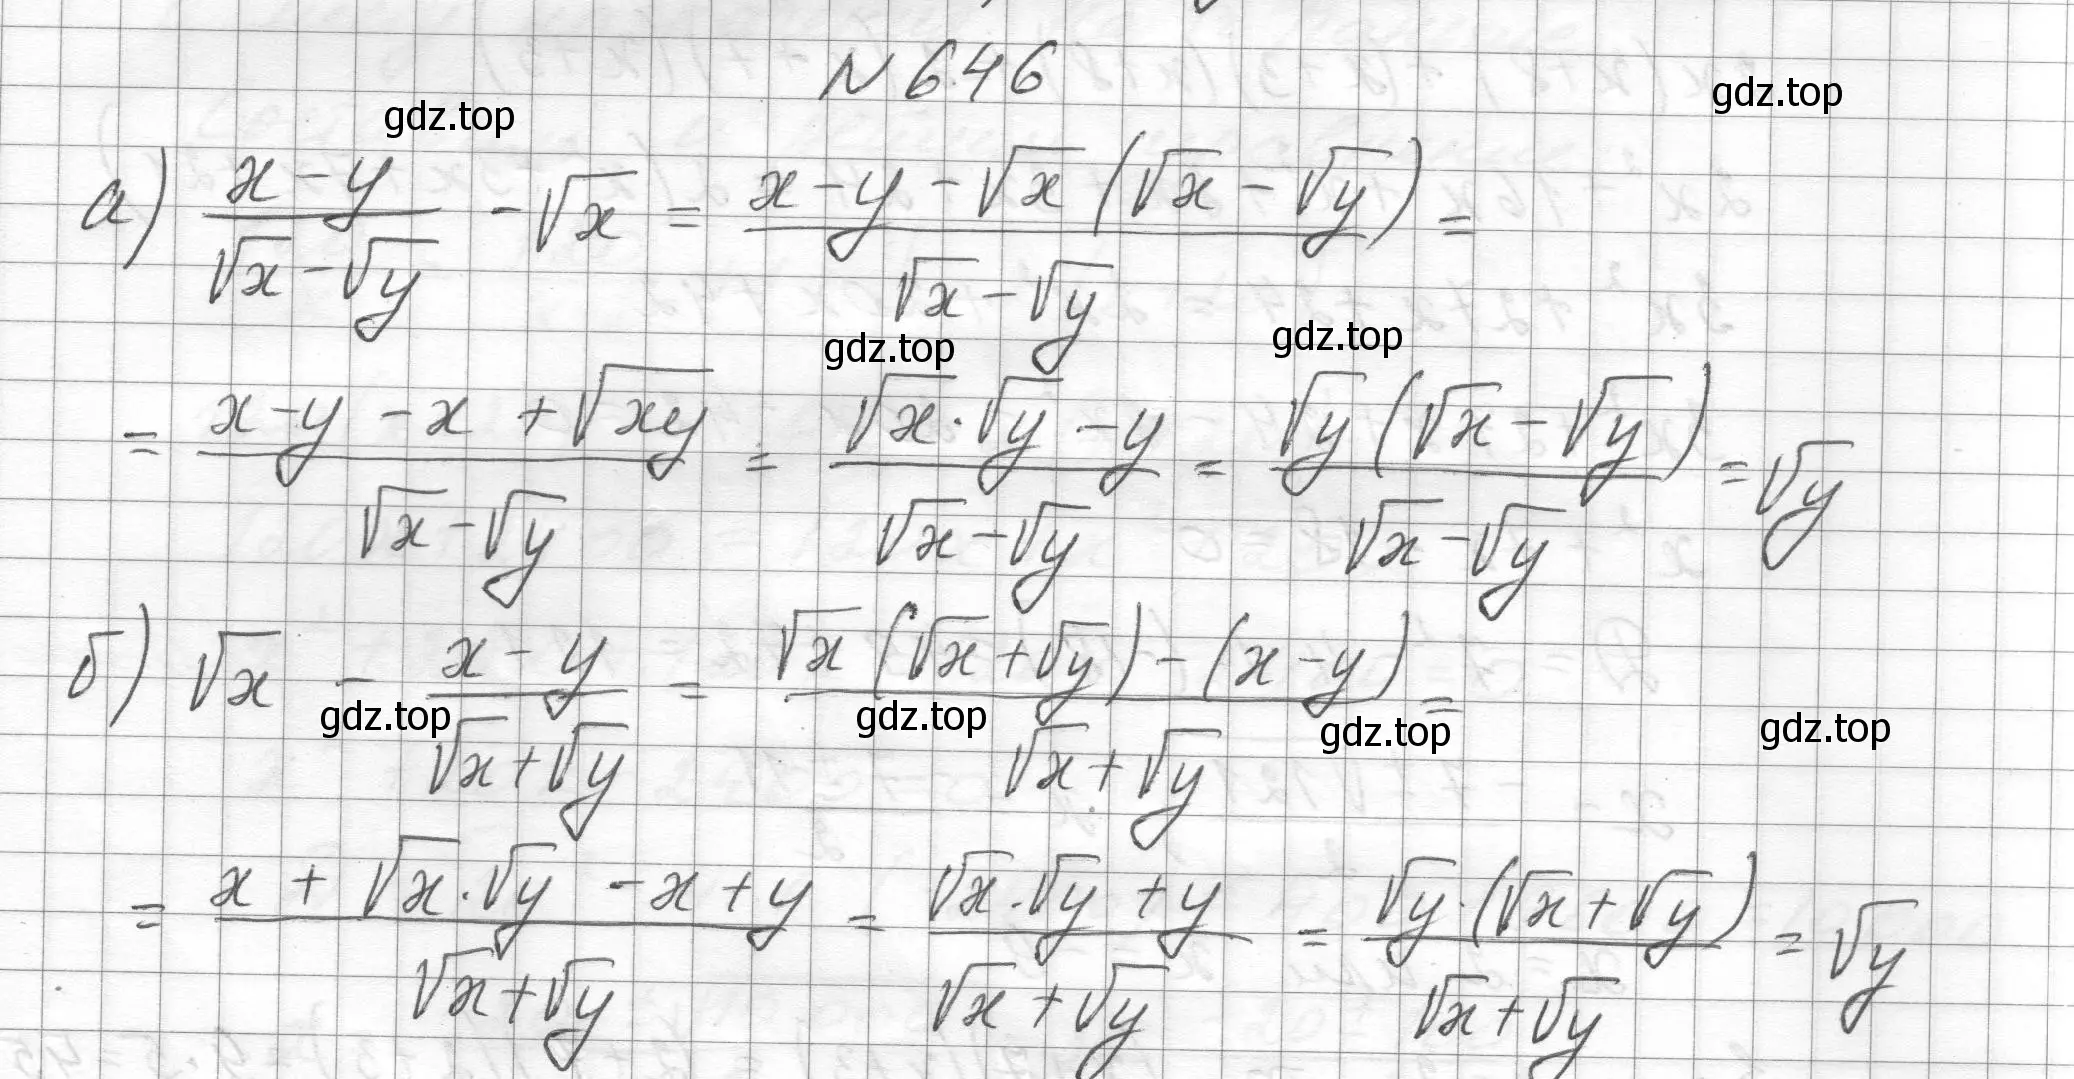 N 646
gdz.top
gdz.top
а) (x-y)/(√x-√y) - √x = (x-y-√x(√x-√y))/(√x-√y) =
gdz.top
gdz.top
= (x-y-x+√xy)/(√x-√y) = (√x·√y-y)/(√x-√y) = (√y(√x-√y))/(√x-√y) = √y
б) √x - (x-y)/(√x+√y) = (√x(√x+√y)-(x-y))/(√x+√y) =
gdz.top
gdz.top
gdz.top
gdz.top
= (x+√x·√y-x+y)/(√x+√y) = (√x·√y+y)/(√x+√y) = (√y·(√x+√y))/(√x+√y) = √y